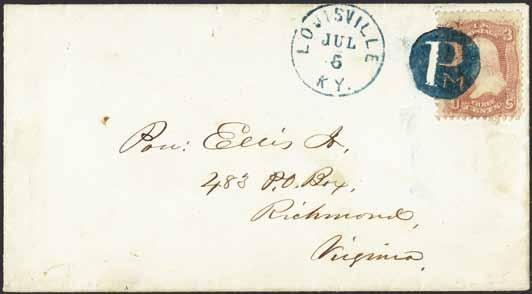 LOUISVILLE
JUL
5
KY.
P
M
3
U S
THREE
CENTS
Pow: Ellis Jr,
483 P.O. Box,
Richmond,
Virginia.